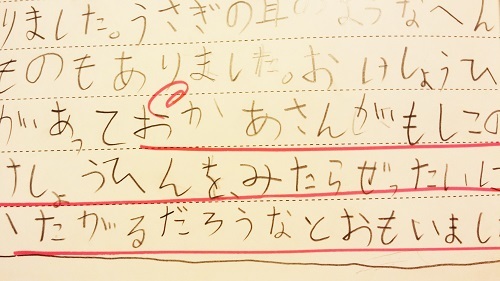 りました。うさぎの耳のようなへん
ものもありました。おけしょうひ
があっておかあさんがもしこの
けしょうひんを、みたらぜったいに
いたがるだろうなとおもいまし